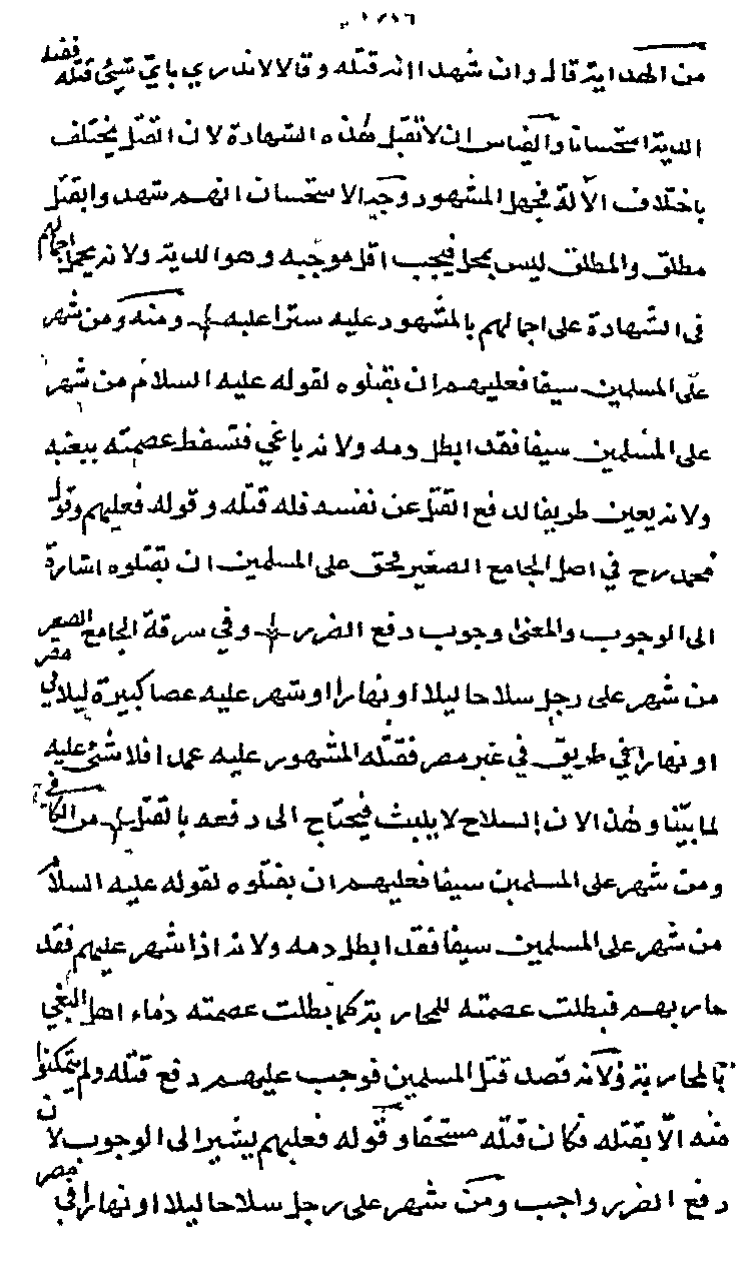 من الهداية قال وان شهدا انه قتله وقالا لا ندري باي شئ قتله ففيه
الدية استحسانا والقياس ان لا تقبل هذه الشهادة لان القتل يختلف
باختلاف الآلة فجهل المشهود وجه الاستحسان انهم شهدوا بقتل
مطلق والمطلق ليس بمجمل فيجب اقل موجبه وهو الدية ولانه يحمل اجمالهم
في الشهادة على اجمالهم بالمشهود عليه سترا عليه ومنه ومن شهر
على المسلمين سيفا فعليهم ان يقتلوه لقوله عليه السلام من شهر
على المسلمين سيفا فقد ابطل دمه ولانه باغي فتسقط عصمته ببغيه
ولانه يعين طريقا لدفع القتل عن نفسه فله قتله وقوله فعليهم وقول
محمد رح في اصل الجامع الصغير فحق على المسلمين ان يقتلوه اشارة
الى الوجوب والمعنى وجوب دفع الضرر وفي سرقة الجامع الصغير
من شهر على رجل سلاحا ليلا او نهارا او شهر عليه عصا كبيرة ليلا في مصر
او نهارا في طريق في غير مصر فقتله المشهور عليه عمدا فلا شئ عليه
لما بينا وهذا لان السلاح لا يلبث فيحتاج الى دفعه بالقتل من الكافي
ومن شهر على المسلمين سيفا فعليهم ان يقتلوه لقوله عليه السلام
من شهر على المسلمين سيفا فقد ابطل دمه ولانه اذا شهر عليهم فقد
حاربهم فبطلت عصمته للمحاربة كما بطلت عصمته دماء اهل البغي
بالمحاربة ولانه قصد قتل المسلمين فوجب عليهم دفع قتله ولم يتمكنوا
منه الا بقتله فكان قتله مستحقا وقوله فعليهم يشير الى الوجوب لان
دفع الضرر واجب ومن شهر على رجل سلاحا ليلا او نهارا في مصر